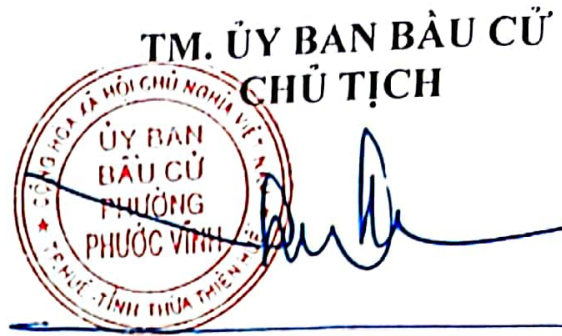 TM. ỦY BAN BẦU CỬ
CHỦ TỊCH
CỘNG HÒA XÃ HỘI CHỦ NGHĨA VIỆT NAM
ỦY BAN
BẦU CỬ
PHƯỜNG
PHƯỚC VĨNH
TP.HUẾ - TỈNH THỪA THIÊN HUẾ